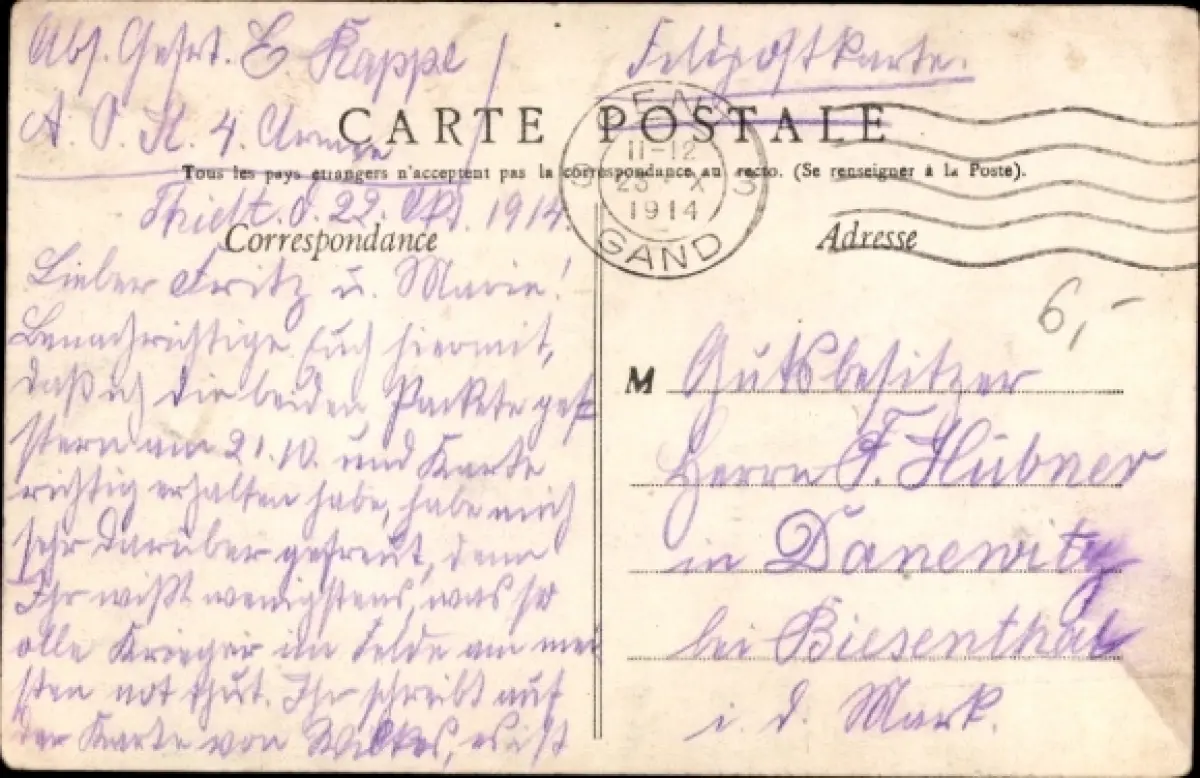 Abs. Gefrt. E Kappel
A. O. K. 4. Armee
Feldpostkarte.
CARTE POSTALE
Tous les pays étrangers n'acceptent pas la correspondance au recto. (Se renseigner à la Poste).
GENT
11-12
23 X
1914
GAND
Thielt. d. 22. Okt. 1914.
Correspondance
Lieber Fritz u. Marie!
Benachrichtige Euch hiermit,
daß ich die beiden Packete ge-
stern am 21.10. und Karte
richtig erhalten habe, habe mich
sehr darüber gefreut, denn
Ihr wißt wenigstens, was so
alle Krieger im Felde am mei
sten not thut. Ihr schreibt auf
der Karte von Wilkes, es ist
Adresse
6,-
M Gutsbesitzer
Herrn F. Hübner
in Danewitz
bei Biesenthal
i. d. Mark.